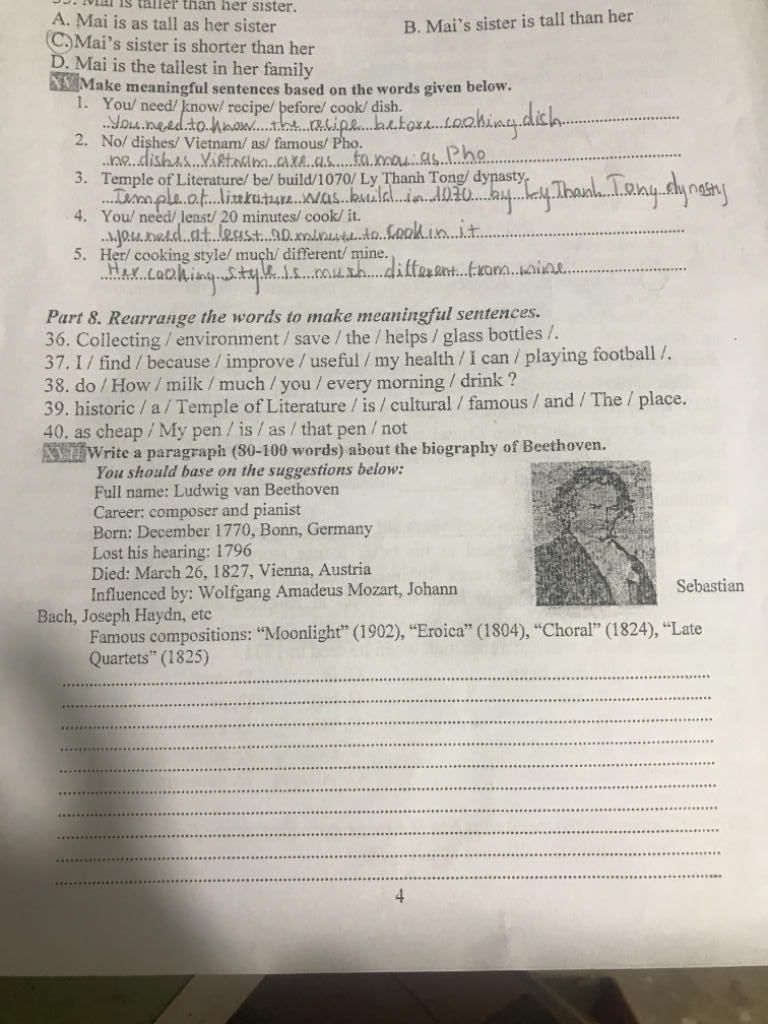 Mai is taller than her sister.
A. Mai is as tall as her sister B. Mai's sister is tall than her
C. Mai's sister is shorter than her
D. Mai is the tallest in her family
Make meaningful sentences based on the words given below.
1. You/ need/ know/ recipe/ before/ cook/ dish.
You need to know the recipe before cooking dish
2. No/ dishes/ Vietnam/ as/ famous/ Pho.
no dishes Vietnam are as famou as Pho
3. Temple of Literature/ be/ build/1070/ Ly Thanh Tong/ dynasty.
Temple of literature was build in 1070 by Ly Thanh Tong dynasty
4. You/ need/ least/ 20 minutes/ cook/ it.
you need at least 20 minute to cook in it
5. Her/ cooking style/ much/ different/ mine.
Her cooking style is much different from mine
Part 8. Rearrange the words to make meaningful sentences.
36. Collecting / environment / save / the / helps / glass bottles /.
37. I / find / because / improve / useful / my health / I can / playing football /.
38. do / How / milk / much / you / every morning / drink ?
39. historic / a / Temple of Literature / is / cultural / famous / and / The / place.
40. as cheap / My pen / is / as / that pen / not
Write a paragraph (80-100 words) about the biography of Beethoven.
You should base on the suggestions below:
Full name: Ludwig van Beethoven
Career: composer and pianist
Born: December 1770, Bonn, Germany
Lost his hearing: 1796
Died: March 26, 1827, Vienna, Austria
Influenced by: Wolfgang Amadeus Mozart, Johann Sebastian
Bach, Joseph Haydn, etc
Famous compositions: “Moonlight” (1902), “Eroica” (1804), “Choral” (1824), “Late
Quartets” (1825)
4